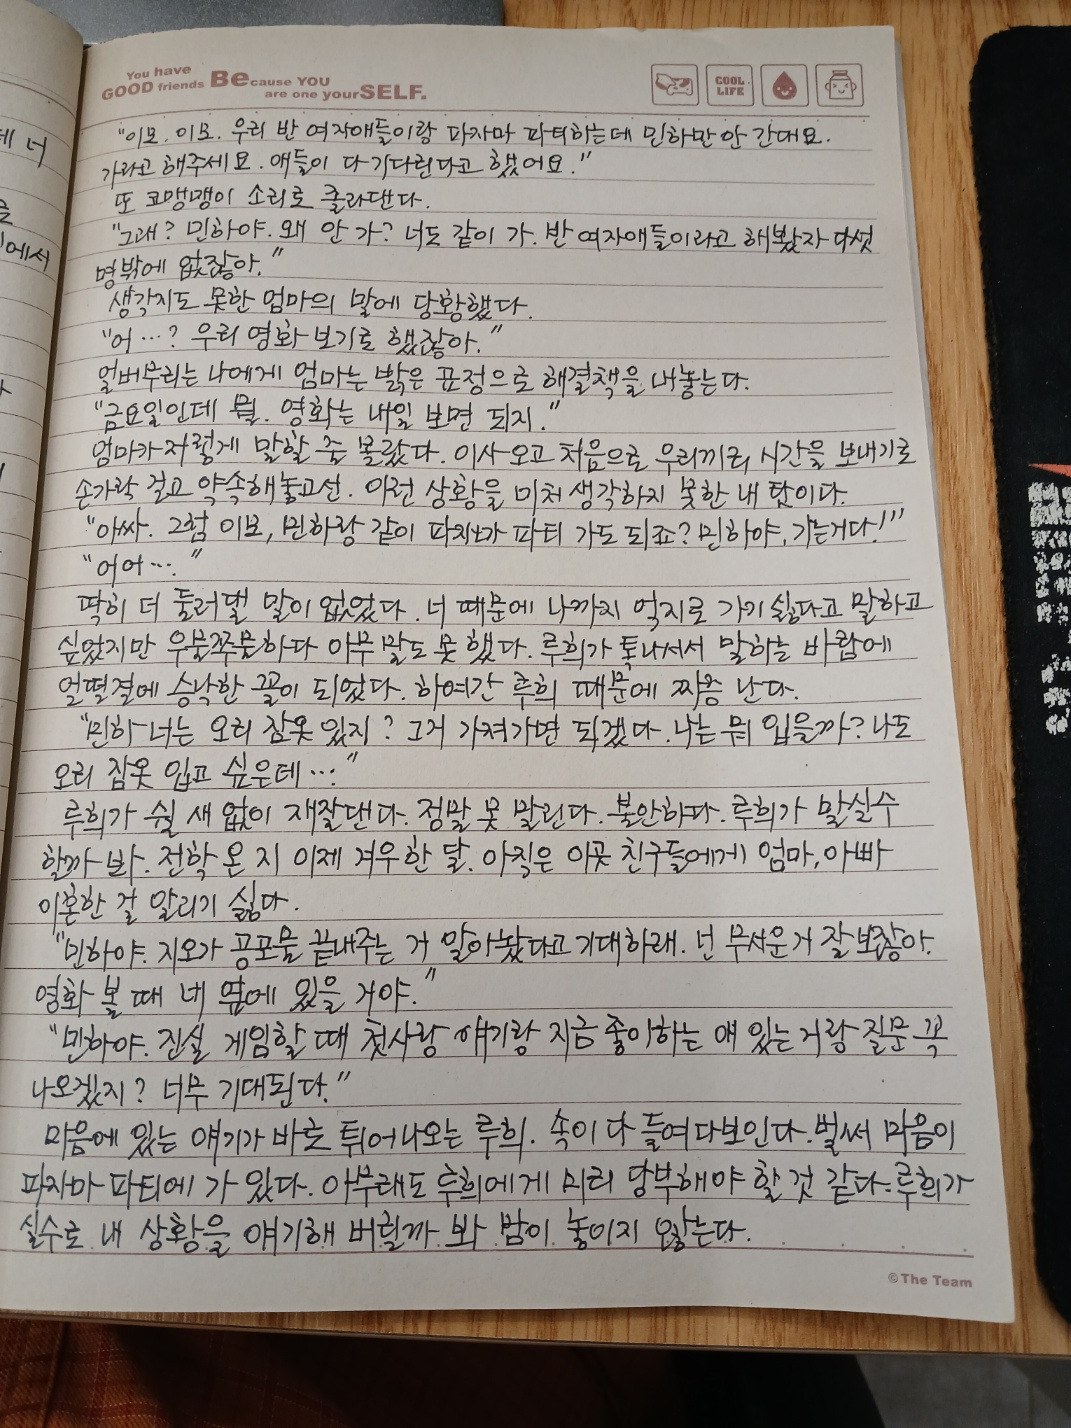 You have
GOOD friends Because YOU
are one yourSELF.
COOL LIFE
"이모. 이모. 우리 반 여자애들이랑 파자마 파티하는데 민하만 안 간대요.
가라고 해주세요. 애들이 다 기다린다고 했어요."
또 코맹맹이 소리로 졸라댄다.
"그래? 민하야. 왜 안 가? 너도 같이 가. 반 여자애들이라고 해봤자 다섯
명밖에 없잖아."
생각지도 못한 엄마의 말에 당황했다.
"어…? 우리 영화 보기로 했잖아."
얼버무리는 나에게 엄마는 밝은 표정으로 해결책을 내놓는다.
"금요일인데 뭘. 영화는 내일 보면 되지."
엄마가 저렇게 말할 줄 몰랐다. 이사 오고 처음으로 우리끼리 시간을 보내기로
손가락 걸고 약속해놓고선. 이런 상황을 미처 생각하지 못한 내 탓이다.
"아싸. 그럼 이모, 민하랑 같이 파자마 파티 가도 되죠? 민하야, 가는거다!"
"어어…."
딱히 더 둘러댈 말이 없었다. 너 때문에 나까지 억지로 가기 싫다고 말하고
싶었지만 우물쭈물하다 아무 말도 못 했다. 루희가 톡 나서서 말하는 바람에
얼떨결에 승낙한 꼴이 되었다. 하여간 루희 때문에 짜증 난다.
"민하 너는 오리 잠옷 있지? 그거 가져가면 되겠다. 나는 뭐 입을까? 나도
오리 잠옷 입고 싶은데…"
루희가 쉴 새 없이 재잘댄다. 정말 못 말린다. 불안하다. 루희가 말실수
할까 봐. 전학 온 지 이제 겨우 한 달. 아직은 이곳 친구들에게 엄마, 아빠
이혼한 걸 알리기 싫다.
"민하야. 지오가 공포물 끝내주는 거 알아놨다고 기대하래. 넌 무서운 거 잘 보잖아.
영화 볼 때 네 옆에 있을 거야."
"민하야. 진실 게임할 때 첫사랑 얘기랑 지금 좋아하는 애 있는 거랑 질문 꼭
나오겠지? 너무 기대된다."
마음에 있는 얘기가 바로 튀어나오는 루희. 속이 다 들여다보인다. 벌써 마음이
파자마 파티에 가 있다. 아무래도 루희에게 미리 당부해야 할 것 같다. 루희가
실수로 내 상황을 얘기해 버릴까 봐 맘이 놓이지 않는다.
©The Team